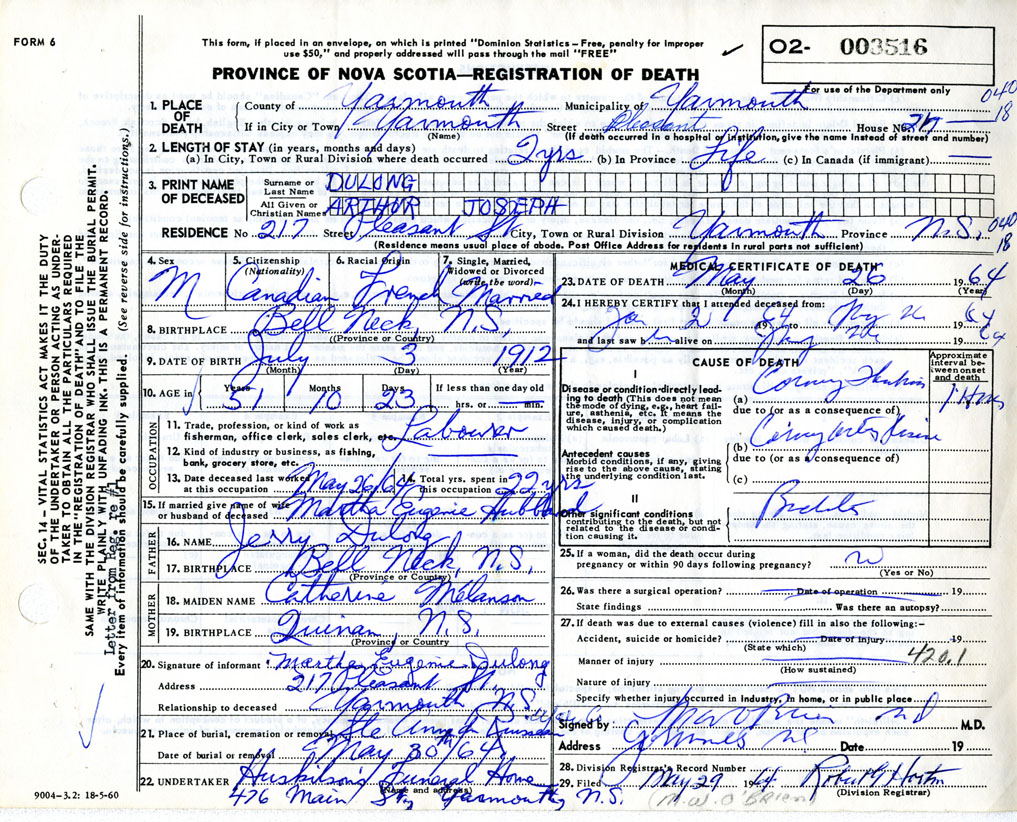 FORM 6
This form, if placed in an envelope, on which is printed "Dominion Statistics—Free, penalty for improper
use $50," and properly addressed will pass through the mail "FREE"
O2- 003516
For use of the Department only
PROVINCE OF NOVA SCOTIA—REGISTRATION OF DEATH
040
18
1. PLACE OF DEATH { County of Yarmouth Municipality of Yarmouth
If in City or Town Yarmouth Street House No.
(Name) (If death occurred in a hospital or institution, give the name instead of street and number)
2. LENGTH OF STAY (in years, months and days)
(a) In City, Town or Rural Division where death occurred 2 yrs (b) In Province Life (c) In Canada (if immigrant) —
3. PRINT NAME OF DECEASED { Surname or Last Name DULONG
All Given or Christian Names ARTHUR JOSEPH
RESIDENCE No 217 Street Pleasant St City, Town or Rural Division Yarmouth Province N.S. 040 18
(Residence means usual place of abode. Post Office Address for residents in rural parts not sufficient)
4. Sex M
5. Citizenship (Nationality) Canadian
6. Racial Origin French
7. Single, Married, Widowed or Divorced (write the word) Married
8. BIRTHPLACE Bell Neck, N.S.
(Province or Country)
9. DATE OF BIRTH July 3 1912
(Month) (Day) (Year)
10. AGE in { Years 51 Months 10 Days 23 If less than one day old
hrs. or min.
OCCUPATION
11. Trade, profession, or kind of work as
fisherman, office clerk, sales clerk, etc. Labourer
12. Kind of industry or business, as fishing,
bank, grocery store, etc.
13. Date deceased last worked at this occupation May 26/64 14. Total yrs. spent in this occupation 22 yrs
15. If married give name of wife or husband of deceased Martha Eugenie Hubbard
FATHER
16. NAME Jerry Dulong
17. BIRTHPLACE Bell Neck, N.S.
(Province or Country)
MOTHER
18. MAIDEN NAME Catherine Melanson
19. BIRTHPLACE Quinan, N.S.
(Province or Country)
20. Signature of informant Martha Eugenie Dulong
Address 217 Pleasant St.
Yarmouth N.S.
Relationship to deceased
21. Place of burial, cremation or removal Ste Ann
Date of burial or removal May 30th/64
22. UNDERTAKER Huskilson's Funeral Home
(Name and address)
476 Main St, Yarmouth, N.S.
MEDICAL CERTIFICATE OF DEATH
23. DATE OF DEATH May 26 1964
(Month) (Day) (Year)
24. I HEREBY CERTIFY that I attended deceased from:
Jan 2 1964 to May 26 1964
and last saw h alive on May 26 1964
CAUSE OF DEATH
Approximate interval between onset and death
I
Disease or condition directly leading to death (This does not mean the mode of dying, e.g., heart failure, asthenia, etc. It means the disease, injury, or complication which caused death.)
(a) Coronary
due to (or as a consequence of)
Antecedent causes
Morbid conditions, if any, giving rise to the above cause, stating the underlying condition last.
(b)
due to (or as a consequence of)
(c)
II
Other significant conditions
contributing to the death, but not related to the disease or condition causing it.
25. If a woman, did the death occur during
pregnancy or within 90 days following pregnancy?
(Yes or No)
26. Was there a surgical operation? Date of operation 19
State findings Was there an autopsy?
27. If death was due to external causes (violence) fill in also the following:—
Accident, suicide or homicide? Date of injury 19
(State which)
420.1
Manner of injury
(How sustained)
Nature of injury
Specify whether injury occurred in industry, in home, or in public place
Signed by M W O'Brien MD M.D.
Address Date 19
28. Division Registrar's Record Number
29. Filed May 29 1964
(Division Registrar)
(M.W. O'BRIEN)
9004-3.2: 18-5-60
SEC. 14—VITAL STATISTICS ACT MAKES IT THE DUTY
OF THE UNDERTAKER OR PERSON ACTING AS UNDER-
TAKER TO OBTAIN ALL THE PARTICULARS REQUIRED
IN THE "REGISTRATION OF DEATH" AND TO FILE THE
SAME WITH THE DIVISION REGISTRAR WHO SHALL ISSUE THE BURIAL PERMIT.
WRITE PLAINLY WITH UNFADING INK. THIS IS A PERMANENT RECORD.
Letter from Reg. re #1
Every item of information should be carefully supplied. (See reverse side for instructions.)